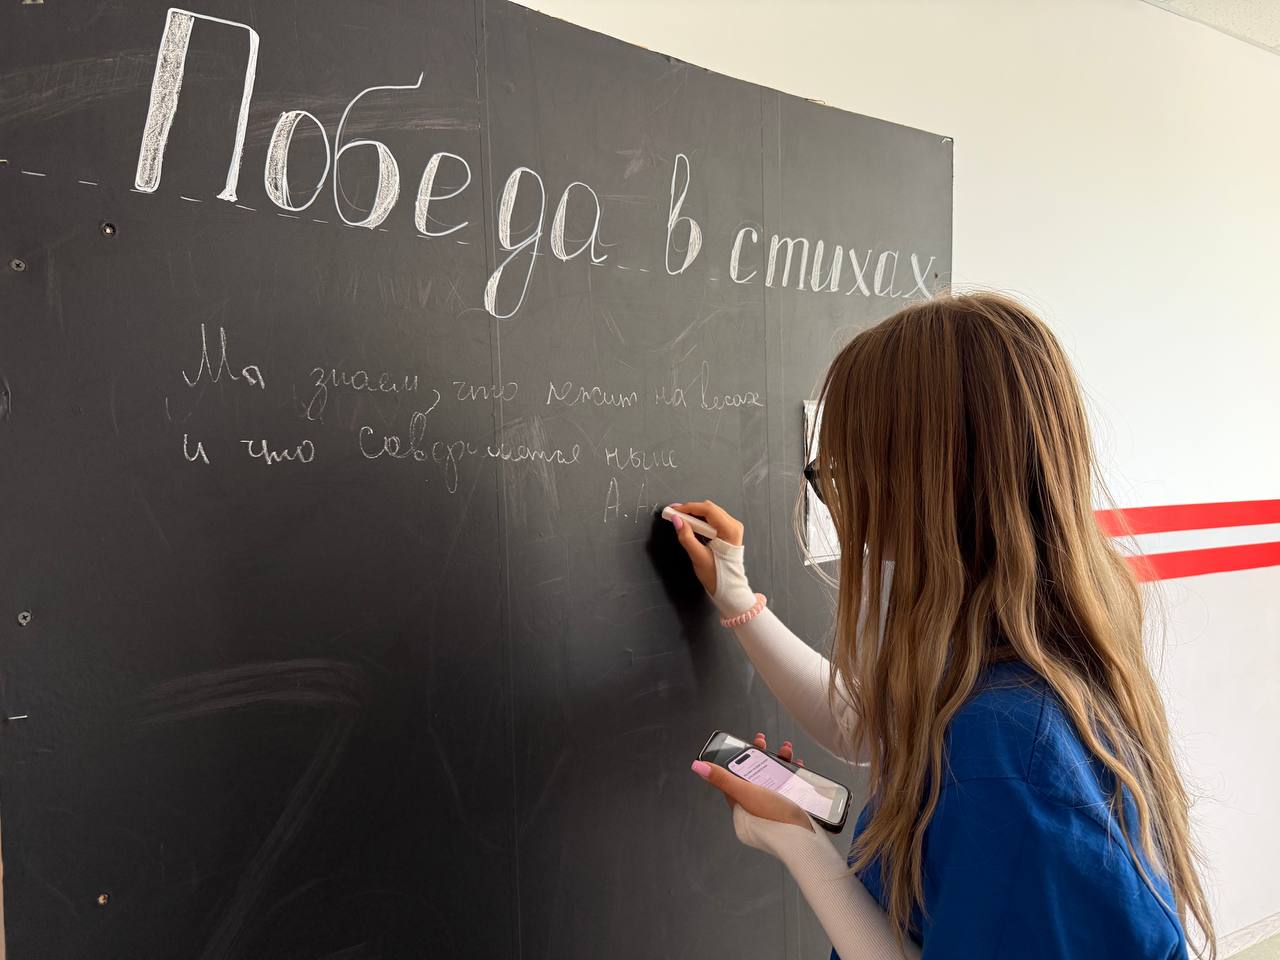 Победа в стихах
Мы знаем, что лежит на весах
и что совершается ныне
А. А